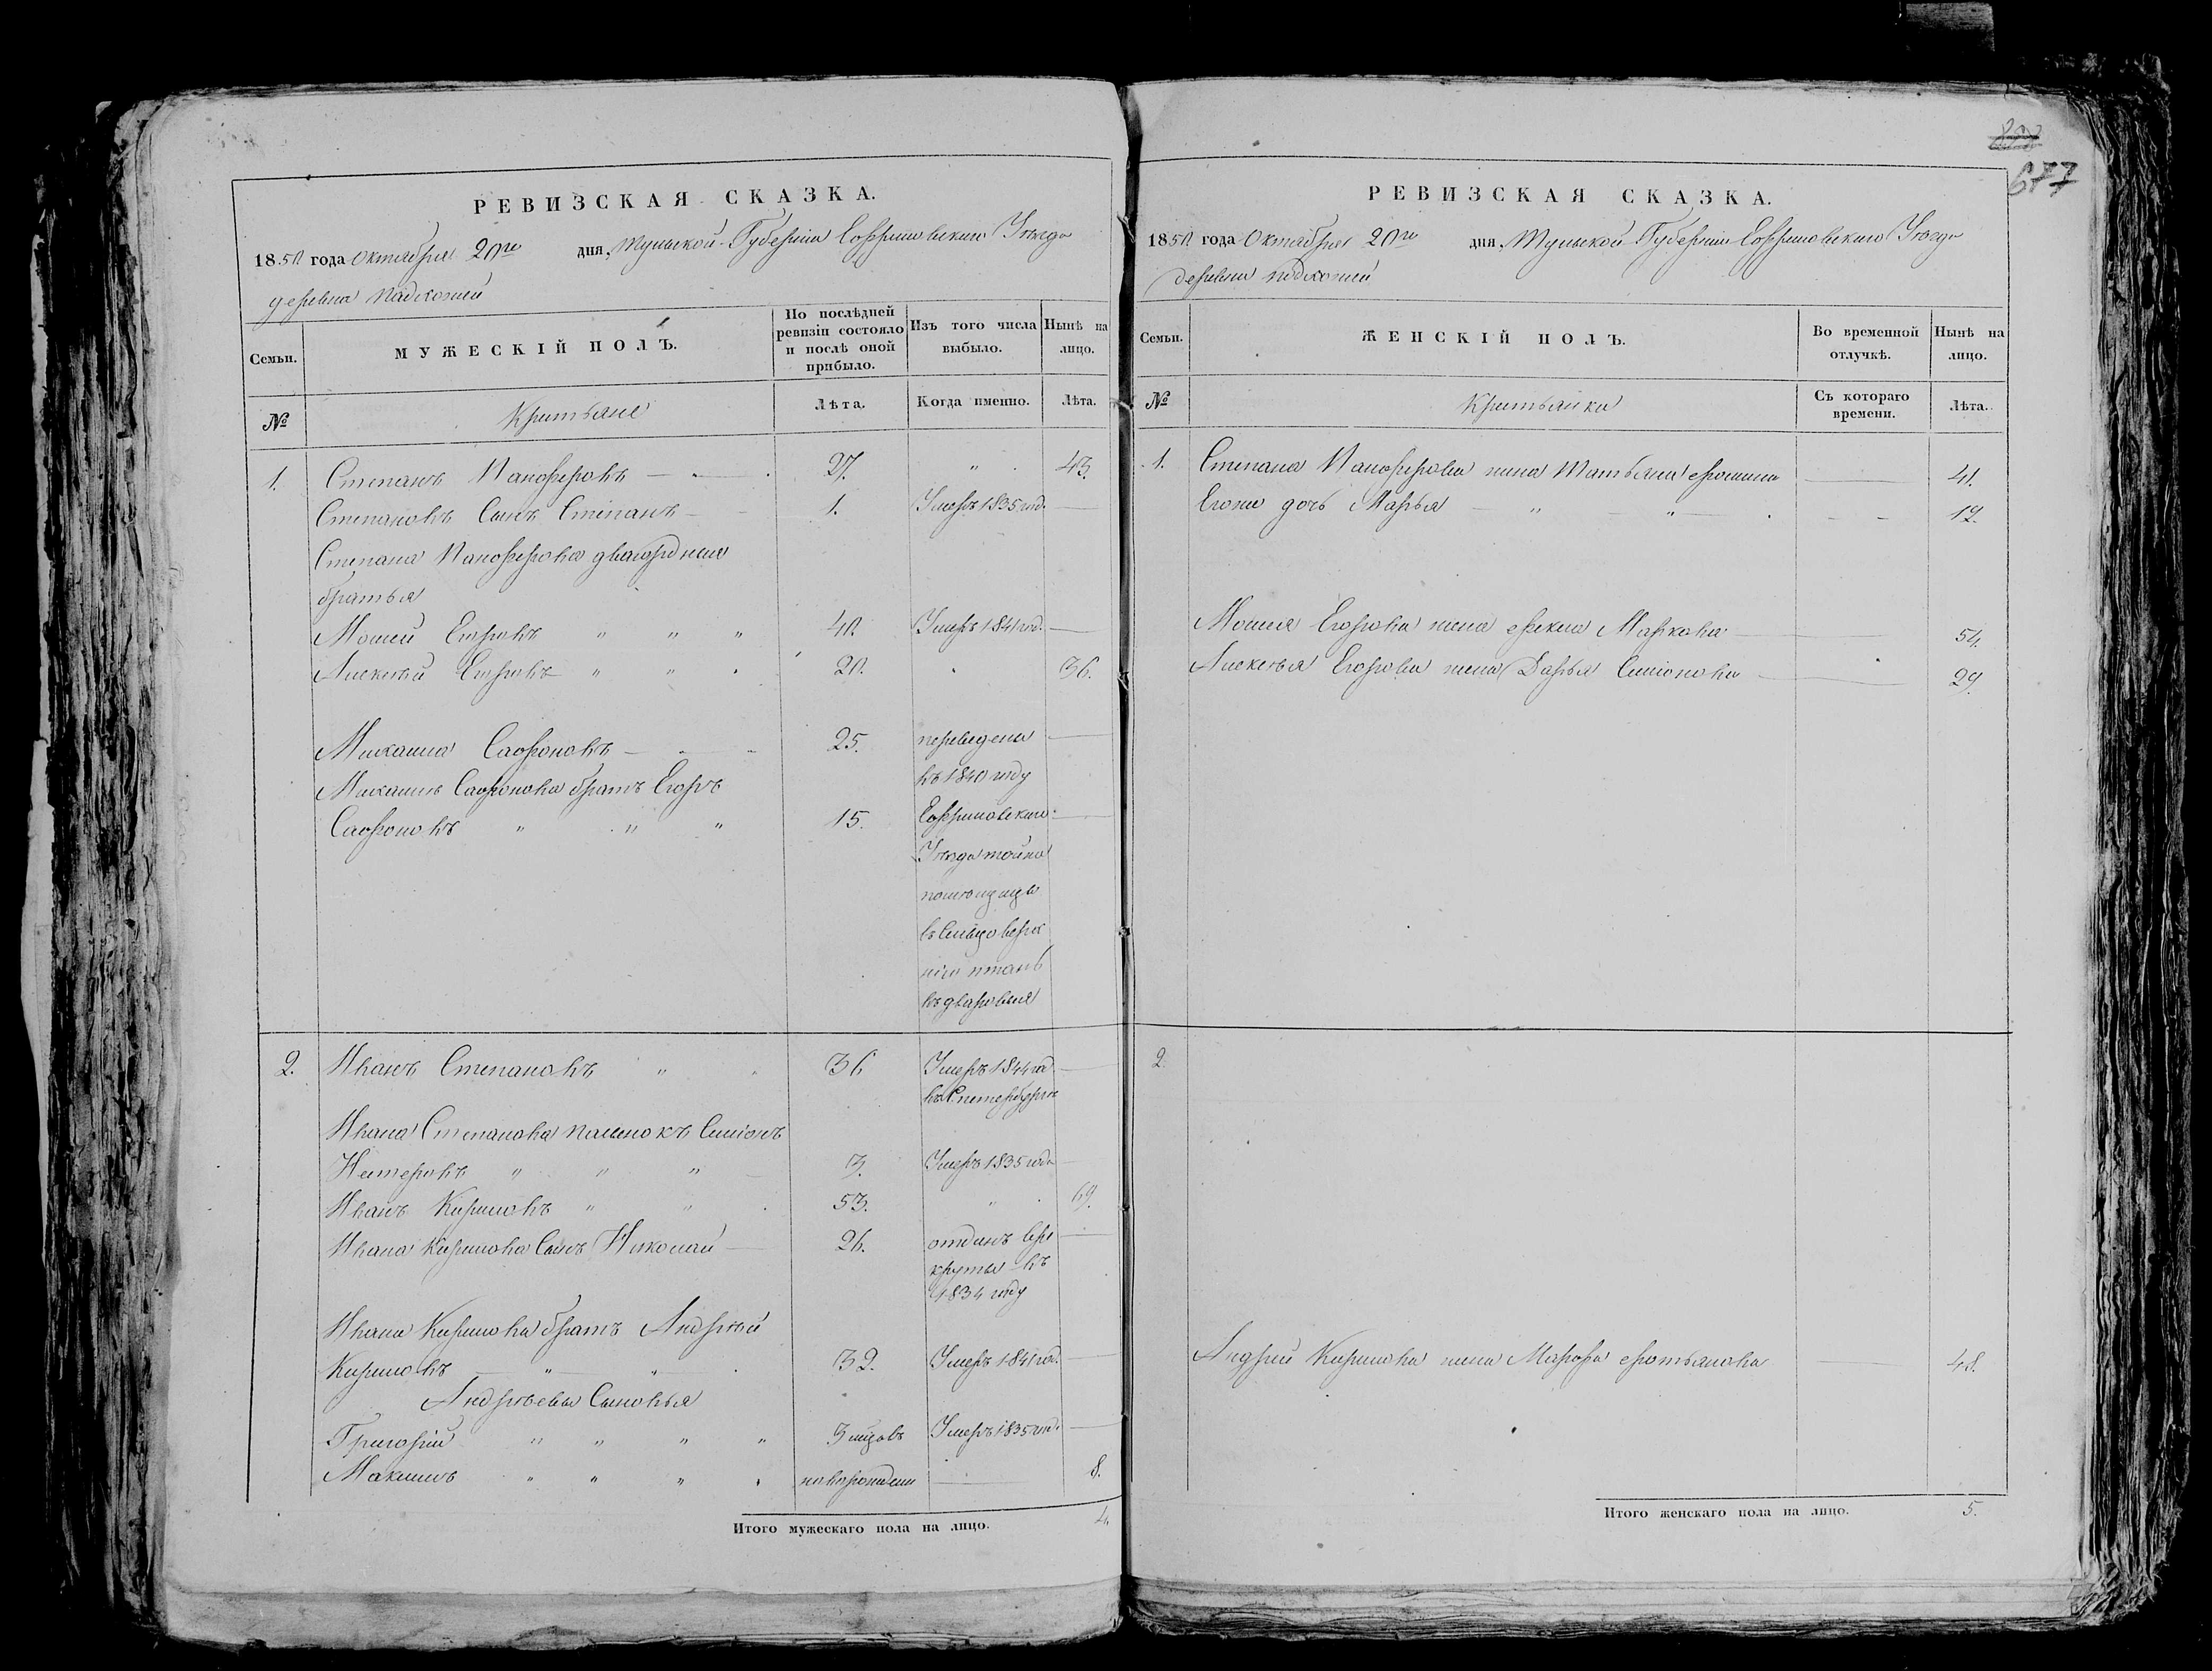 677
РЕВИЗСКАЯ СКАЗКА.
1850 года Октября 20го дня, Тульской Губернии Ефремовскаго Уѣзда
деревна
Семьи.
МУЖЕСКІЙ ПОЛЪ.
По послѣдней ревизіи состояло и послѣ оной прибыло.
Изъ того числа выбыло.
Нынѣ на лицо.
№
Лѣта.
Когда именно.
Лѣта.
1. Степанъ Панферовъ 27. " 43.
Степановъ Сынъ Степанъ 1. Умеръ 1835 год.
Степана Панферова двародные
братья
Мосей Егоровъ " " " 40. Умеръ 1841 год.
Алексѣй Егоровъ " " 20. " 36.
Микаила Сафроновъ 25. переведены
въ 1840 году
Микаилы Сафронова братъ Егоръ
Сафроновъ " " " 15. Ефремовскаго
Уѣзда тойжа
помѣщицы
въ дваровыя
2. Иванъ Степановъ " 36 Умеръ 1844 год
въ С. петербурге
Ивана Степанова Семіонъ
Нестеровъ " " " 3. Умеръ 1835 года
Иванъ Кириловъ " " 53. " 69.
Ивана Кирилова Сынъ Николай 26. отданъ вре
круты въ
1834 году
Ивана Кирилова братъ Андрѣй
Кириловъ " " 32. Умеръ 1841 год.
Андрѣевы Сыновья
Григорій " " " " Умеръ 1835 год.
Максимъ " " " 8.
Итого мужескаго пола на лицо. 4.
РЕВИЗСКАЯ СКАЗКА.
1850 года Октября 20го дня, Тульской Губернии Ефремовскаго Уѣзда
деревни
Семьи.
ЖЕНСКІЙ ПОЛЪ.
Во временной отлучкѣ.
Нынѣ на лицо.
№
Съ котораго времени.
Лѣта.
1. Степана Панферова жина Татьяна 41.
Егоже дочь Марья " " 12.
Мосея Егорова жена Маркова 54.
Алексѣя Егорова жена Дарья Симіонова 29.
2.
Андрей Кирилова жена Марфа 48.
Итого женскаго пола на лицо. 5.